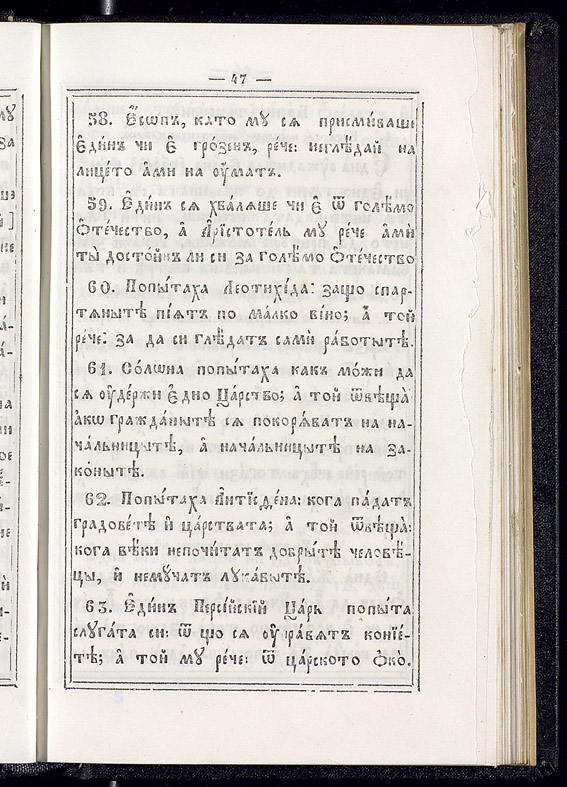 — 47 —
58. Е҆сѡпъ, като му ся присмиваше
Е҆ди́нъ чи є҆ гро́зенъ, ре́че: неглѣдай на
лице́то а҆ми на оу҆матъ.
59. Е҆ди́нъ ся хва́ляше чи є҆ ѿ голѣ́мо
Ѻ҆те́чество, а҆ А҆рїсто́тель му ре́че а҆мѝ
ты̀ досто́йнъ ли си за голѣ́мо Ѻ҆те́чество
60. Попы́таха Леотихі́да: защо спар-
тяны́тѣ пі́ятъ по ма́лко ві́но; а҆ той
ре́че: за да си глѣ́датъ самѝ ра́ботытѣ.
61. Со́лѡна попы́таха какъ мо́жи да
ся оу҆де́ржи є҆дно Ца́рство; а҆ той ѿвѣща̀:
а҆кѡ гражда́нытѣ ся покоря́ватъ на на-
ча́льницытѣ, а҆ нача́льницытѣ на за-
ко́нытѣ.
62. Попы́таха А҆нтїсѳе́на: кога па́датъ
градове́тѣ и҆ ца́рствата; а҆ той ѿвѣща̀:
кога вѣ́ки непочи́татъ добры́тѣ человѣ́-
цы, и҆ немуча́тъ лука́вытѣ.
63. Е҆ди́нъ Персі́йскїй Ца́рь попы́та
слуга́та си: ѿ що ся оу҆гравятъ конїе́-
тѣ; а҆ той му ре́че: ѿ ца́рското ѻ҆ко̀.